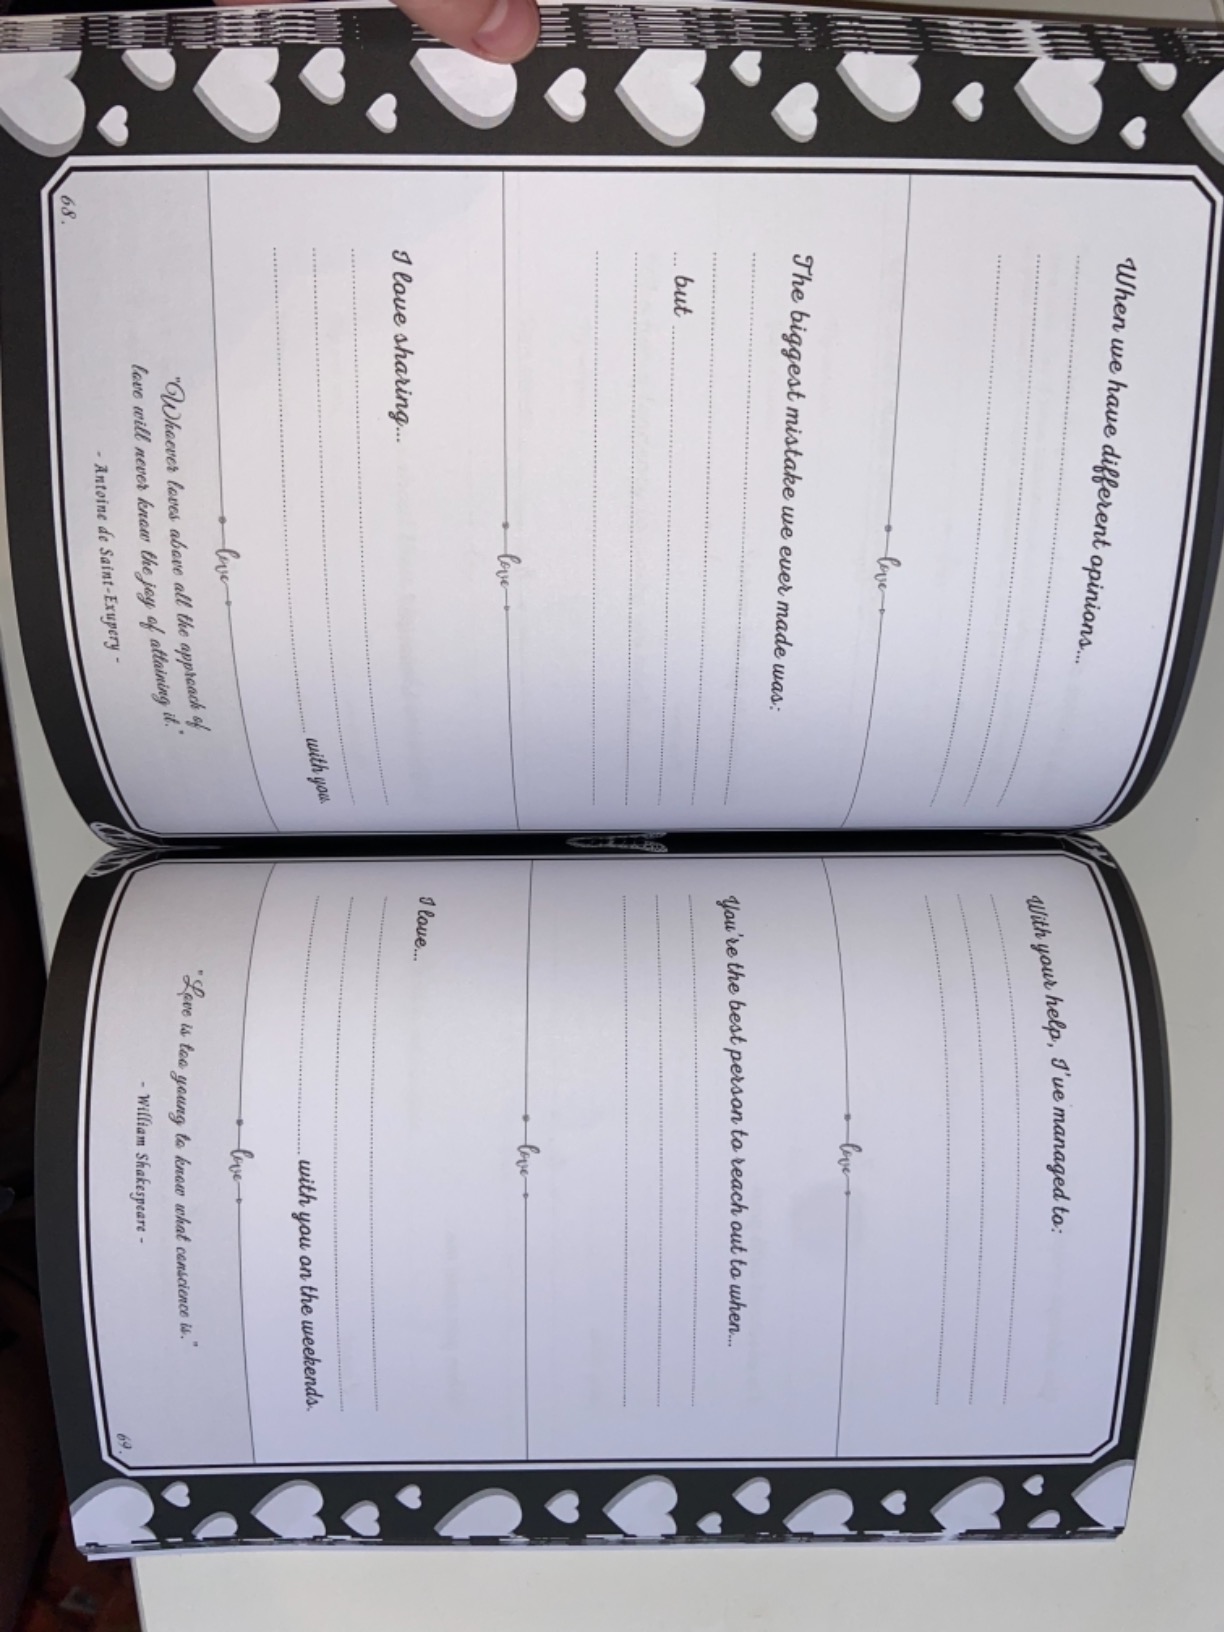 When we have different opinions...
love
The biggest mistake we ever made was:
... but
love
I love sharing...
with you.
love
"Whoever loves above all the approach of
love will never know the joy of attaining it."
- Antoine de Saint-Exupery -
68.
With your help, I've managed to:
love
You're the best person to reach out to when...
love
I love...
with you on the weekends.
love
"Love is too young to know what conscience is."
- William Shakespeare -
69.